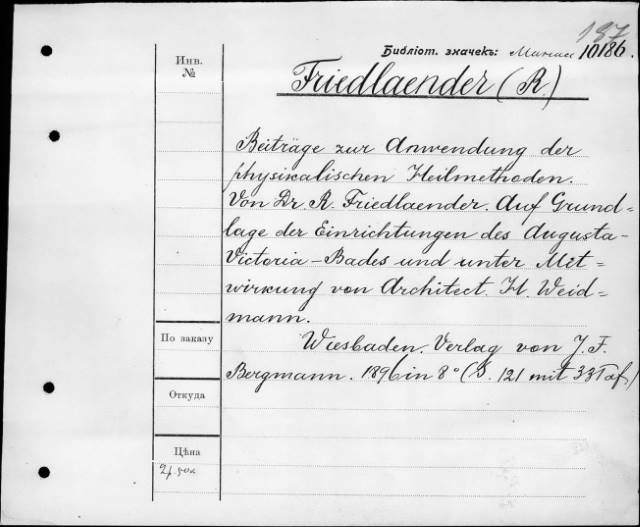 187
Библіот. значекъ: 10186.
Инв.
№
Friedlaender (R.)
Beiträge zur Anwendung der
physikalischen Heilmethoden.
Von Dr. R. Friedlaender. Auf Grund=
lage der Einrichtungen des Augusta-
Victoria-Bades und unter Mit=
wirkung von Architect. H. Weid=
mann.
По заказу
Wiesbaden. Verlag von J. F.
Bergmann. 1896 in 8° (S. 121 mit 33 Taf)
Откуда
Цѣна